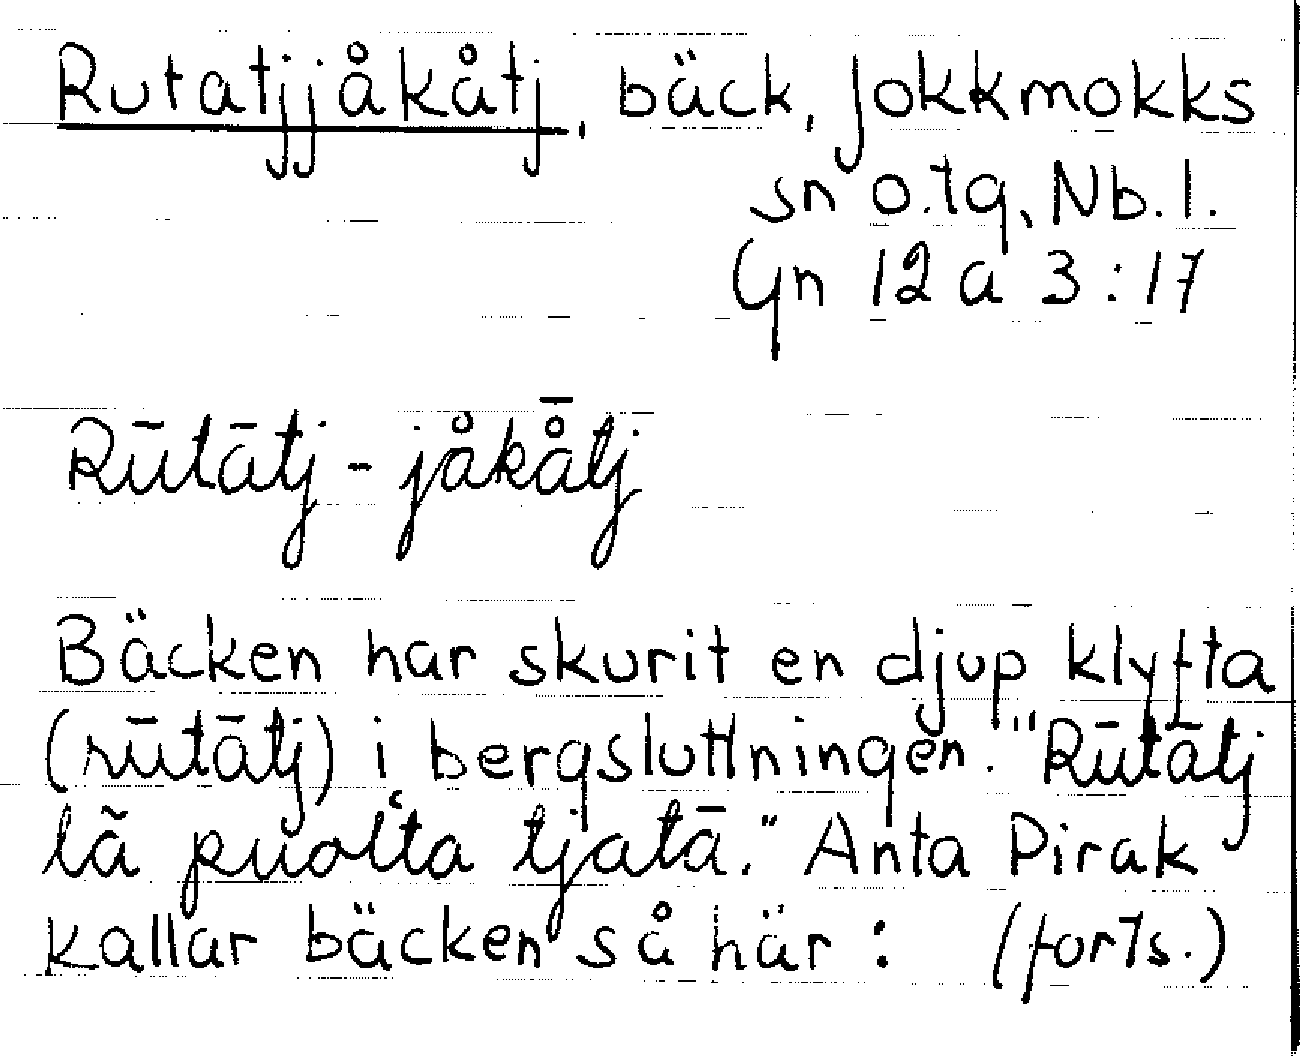 Rutatjjåkåtj, bäck, Jokkmokks
sn o.tg, Nb.l.
Gn 12 a 3:17
Rūtātj - jåkå̄tj
Bäcken har skurit en djup klyfta
(rūtātj) i bergsluttningen. "Rūtātj
lä puolta tjatā." Anta Pirak
kallar bäcken så här: (forts.)